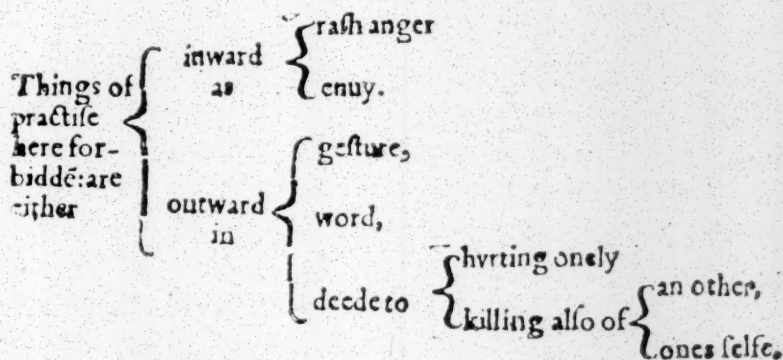 Things of
practiſe
here for-
biddē: are
either
inward
as
raſh anger
enuy.
outward
in
geſture,
word,
deede to
hvrting onely
killing alſo of
an other,
ones ſelfe.